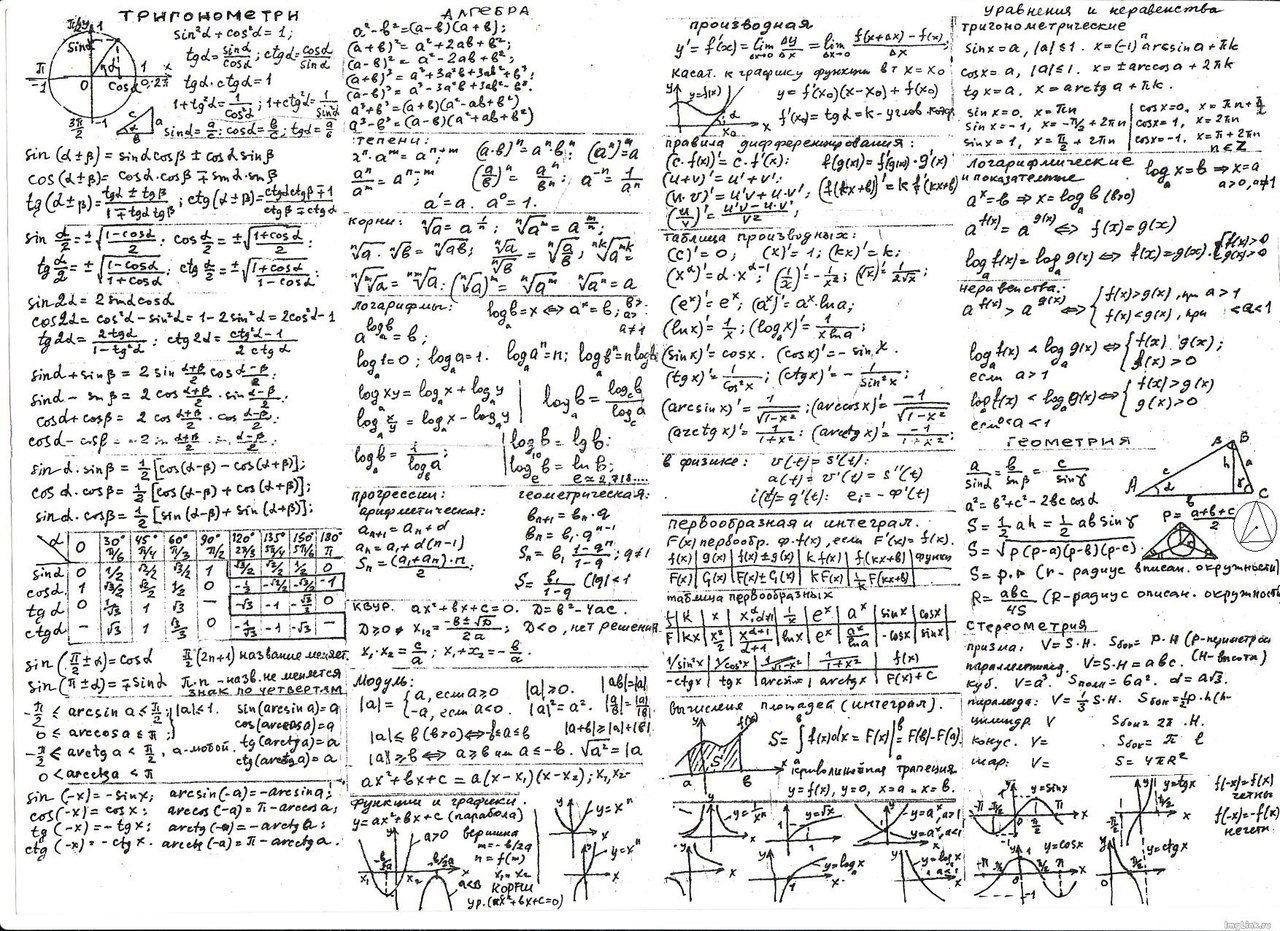 ТРИГОНОМЕТРИ
sin²α + cos²α = 1;
tgα = sinα/cosα; ctgα = cosα/sinα
tgα · ctgα = 1
1 + tg²α = 1/cos²α; 1 + ctg²α = 1/sin²α
sinα = a/c; cosα = b/c; tgα = a/b
sin(α±β) = sinα cosβ ± cosα sinβ
cos(α±β) = cosα · cosβ ∓ sinα · sinβ
tg(α±β) = (tgα ± tgβ)/(1 ∓ tgα tgβ); ctg(α±β) = (ctgα ctgβ ∓ 1)/(ctgβ ± ctgα)
sin α/2 = ±√((1-cosα)/2); cos α/2 = ±√((1+cosα)/2);
tg α/2 = ±√((1-cosα)/(1+cosα)); ctg α/2 = ±√((1+cosα)/(1-cosα));
sin2α = 2 sinα cosα
cos2α = cos²α - sin²α = 1 - 2sin²α = 2cos²α - 1
tg2α = 2tgα/(1-tg²α); ctg2α = (ctg²α - 1)/(2ctgα)
sinα + sinβ = 2 sin (α+β)/2 cos (α-β)/2;
sinα - sinβ = 2 cos (α+β)/2 · sin (α-β)/2;
cosα + cosβ = 2 cos (α+β)/2 · cos (α-β)/2;
cosα - cosβ = -2 sin (α+β)/2 · sin (α-β)/2;
sinα · sinβ = 1/2 [cos(α-β) - cos(α+β)];
cosα · cosβ = 1/2 [cos(α-β) + cos(α+β)];
sinα · cosβ = 1/2 [sin(α-β) + sin(α+β)];
α 0 30° π/6 45° π/4 60° π/3 90° π/2 120° 2π/3 135° 3π/4 150° 5π/6 180° π
sinα 0 1/2 √2/2 √3/2 1 √3/2 √2/2 1/2 0
cosα 1 √3/2 √2/2 1/2 0 -1/2 -√2/2 -√3/2 -1
tgα 0 1/√3 1 √3 — -√3 -1 -√3/3 0
ctgα — √3 1 √3/3 0 -1/√3 -1 -√3 —
sin(π/2 ± α) = cosα π/2 (2n+1) название меняет.
sin(π ± α) = ∓sinα π·n - назв. не меняется
знак по четвертям
-π/2 ≤ arcsin a ≤ π/2; |a| ≤ 1. sin(arcsin a) = a
0 ≤ arccos a ≤ π; cos(arccos a) = a
-π/2 ≤ arctg a < π/2, a-любой. tg(arctg a) = a
0 < arcctg a < π ctg(arctg a) = a
sin(-x) = -sinx; arcsin(-a) = -arcsin a;
cos(-x) = cosx; arccos(-a) = π - arccos a;
tg(-x) = -tgx; arctg(-a) = -arctg a;
ctg(-x) = -ctgx. arcctg(-a) = π - arcctg a.
АЛГЕБРА
a² - b² = (a-b)(a+b);
(a+b)² = a² + 2ab + b²;
(a-b)² = a² - 2ab + b²;
(a+b)³ = a³ + 3a²b + 3ab² + b³;
(a-b)³ = a³ - 3a²b + 3ab² - b³.
a³ + b³ = (a+b)(a² - ab + b²)
a³ - b³ = (a-b)(a² + ab + b²)
тепени:
aⁿ · aᵐ = aⁿ⁺ᵐ (a·b)ⁿ = aⁿbⁿ;
aⁿ/aᵐ = aⁿ⁻ᵐ (a/b)ⁿ = aⁿ/bⁿ; a⁻ⁿ = 1/aⁿ
a¹ = a. a⁰ = 1.
корни:
логарифмы: log_a b = x ⇔ aˣ = b;
a^(log_a b) = b;
log_a 1 = 0; log_a a = 1. log_a aⁿ = n; log_a bⁿ = n log_a b
log_a xy = log_a x + log_a y
log_a x/y = log_a x - log_a y log_a b = log_c b / log_c a
log_a b = 1/log_b a log_10 b = lg b;
log_e b = ln b; e ≈ 2,718....
прогрессии: геометрическая:
арифметическая: bₙ₊₁ = bₙ · q
aₙ₊₁ = aₙ + d bₙ = b₁ · qⁿ⁻¹
aₙ = a₁ + d(n-1) Sₙ = b₁ · (1-qⁿ)/(1-q); q≠1
Sₙ = (a₁+aₙ)·n/2; S = b₁/(1-q) (|q|<1
квур. ax² + bx + c = 0. D = b² - 4ac.
D ≥ 0 x₁₂ = (-b ± √D)/2a; D < 0, нет решения.
x₁ · x₂ = c/a; x₁ + x₂ = -b/a.
Модуль:
|a| = {a, если a ≥ 0 |a| ≥ 0. |ab| = |a|
-a, если a < 0. |a|² = a².
|a| ≤ b (b>0) ⇔ -b ≤ a ≤ b |a+b| ≥ |a| + |b|
|a| ≥ b ⇔ a ≥ b или a ≤ -b. √a² = |a
ax² + bx + c = a(x-x₁)(x-x₂); x₁, x₂-
функции и графики.
y = ax² + bx + c (парабола)
a>0 вершина
m = -b/2a
n = f(m)
x₁ x₂
a<0 корни
ур. (ax² + bx + c = 0)
y = xⁿ
y = xⁿ
производная
y' = f'(x) = lim Δx→0 Δy/Δx = lim Δx→0 (f(x+Δx) - f(x))/Δx;
касат. к графику функции в т x = x₀
y = f(x) y = f'(x₀)(x-x₀) + f(x₀)
f'(x₀) = tgα = k - углов. коэф.
правила дифференцирования:
(c·f(x))' = c·f'(x): f(g(x)) = f'(g(x))·g'(x)
(u+v)' = u' + v';
(u·v)' = u'v + u·v'; (f(kx+b))' = k f'(kx+b)
(u/v)' = (u'v - u·v')/v²;
таблица производных:
(c)' = 0; (x)' = 1; (kx)' = k;
(x^α)' = α·x^(α-1) (1/x)' = -1/x²; (√x)' = 1/(2√x)
(eˣ)' = eˣ; (aˣ)' = aˣ·ln a;
(ln x)' = 1/x; (log_a x)' = 1/(x ln a)
(sin x)' = cosx. (cos x)' = -sin x.
(tg x)' = 1/cos²x; (ctg x)' = -1/sin²x;
(arcsin x)' = 1/√(1-x²); (arccos x)' = -1/√(1-x²)
(arctg x)' = 1/(1+x²); (arcctg x)' = -1/(1+x²);
в физике: v(t) = s'(t);
a(t) = v'(t) = s''(t)
i(t) = q'(t): eᵢ = -Ф'(t)
первообразная и интеграл.
F(x) первообр. ф. f(x), если F'(x) = f(x).
f(x) g(x) f(x)±g(x) k f(x) f(kx+b) функц
F(x) G(x) F(x)±G(x) kF(x) 1/k F(kx+b)
таблица первообразных
f k x x^α, α≠1 1/x eˣ aˣ sinx cosx
F kx x²/2 x^(α+1)/(α+1) lnx eˣ aˣ/ln a -cosx sinx
1/sin²x 1/cos²x 1/√(1-x²) 1/(1+x²) f(x)
-ctgx tgx arcsinx arctgx F(x)+C
вычисления площадей (интеграл).
S = ∫ f(x)dx = F(x)| = F(b) - F(a)
криволинейная трапеция
y = f(x), y = 0, x = a и x = b.
y = √x
y = aˣ, a>1
y = log_a x
уравнения и неравенства
тригонометрические
sinx = a, |a| ≤ 1. x = (-1)ⁿ arcsin a + πk
cosx = a, |a| ≤ 1. x = ± arccos a + 2πk
tgx = a, x = arctg a + πk.
sinx = 0. x = πn cosx = 0, x = πn + π/2
sinx = -1, x = -π/2 + 2πn cosx = 1, x = 2πn
sinx = 1, x = π/2 + 2πn cosx = -1, x = π + 2πn
n∈Z
логарифмические
и показательные log_a x = b ⇒ x = a
a>0, a≠1
aˣ = b ⇒ x = log_a b (b>0)
a^f(x) = a^g(x) ⇔ f(x) = g(x)
log_a f(x) = log_a g(x) ⇔ f(x) = g(x) {f(x)>0 g(x)>0
неравенства:
a^f(x) > a^g(x) ⇔ {f(x) > g(x), при a > 1
f(x) < g(x), при <a<1
log_a f(x) < log_a g(x) ⇔ {f(x) g(x);
если a > 1 f(x) > 0
log_a f(x) < log_a g(x) ⇔ {f(x) > g(x)
если <a<1 g(x) > 0
геометрия
a/sinα = b/sinβ = c/sinγ
a² = b² + c² - 2bc cosα
S = 1/2 ah = 1/2 ab sinγ P = (a+b+c)/2
S = √(p(p-a)(p-b)(p-c))
S = p·r (r - радиус вписан. окружности)
R = abc/4S (R - радиус описан. окружност
стереометрия
призма: V = S·H. Sбок = P·H (P-периметр
параллелепипед V = S·H = abc. (H-высота)
куб. V = a³. Sполн = 6a². d = a√3.
пирамида: V = 1/3 S·H.
цилиндр V Sбок = 2π ·H.
конус. V = Sбок = π l
шар: V = S = 4πR²
y = sinx
y = cosx
y = tgx
y = ctgx
f(-x) = f(x)
четн
f(-x) = -f(x)
нечетн.
ImgLink.ru